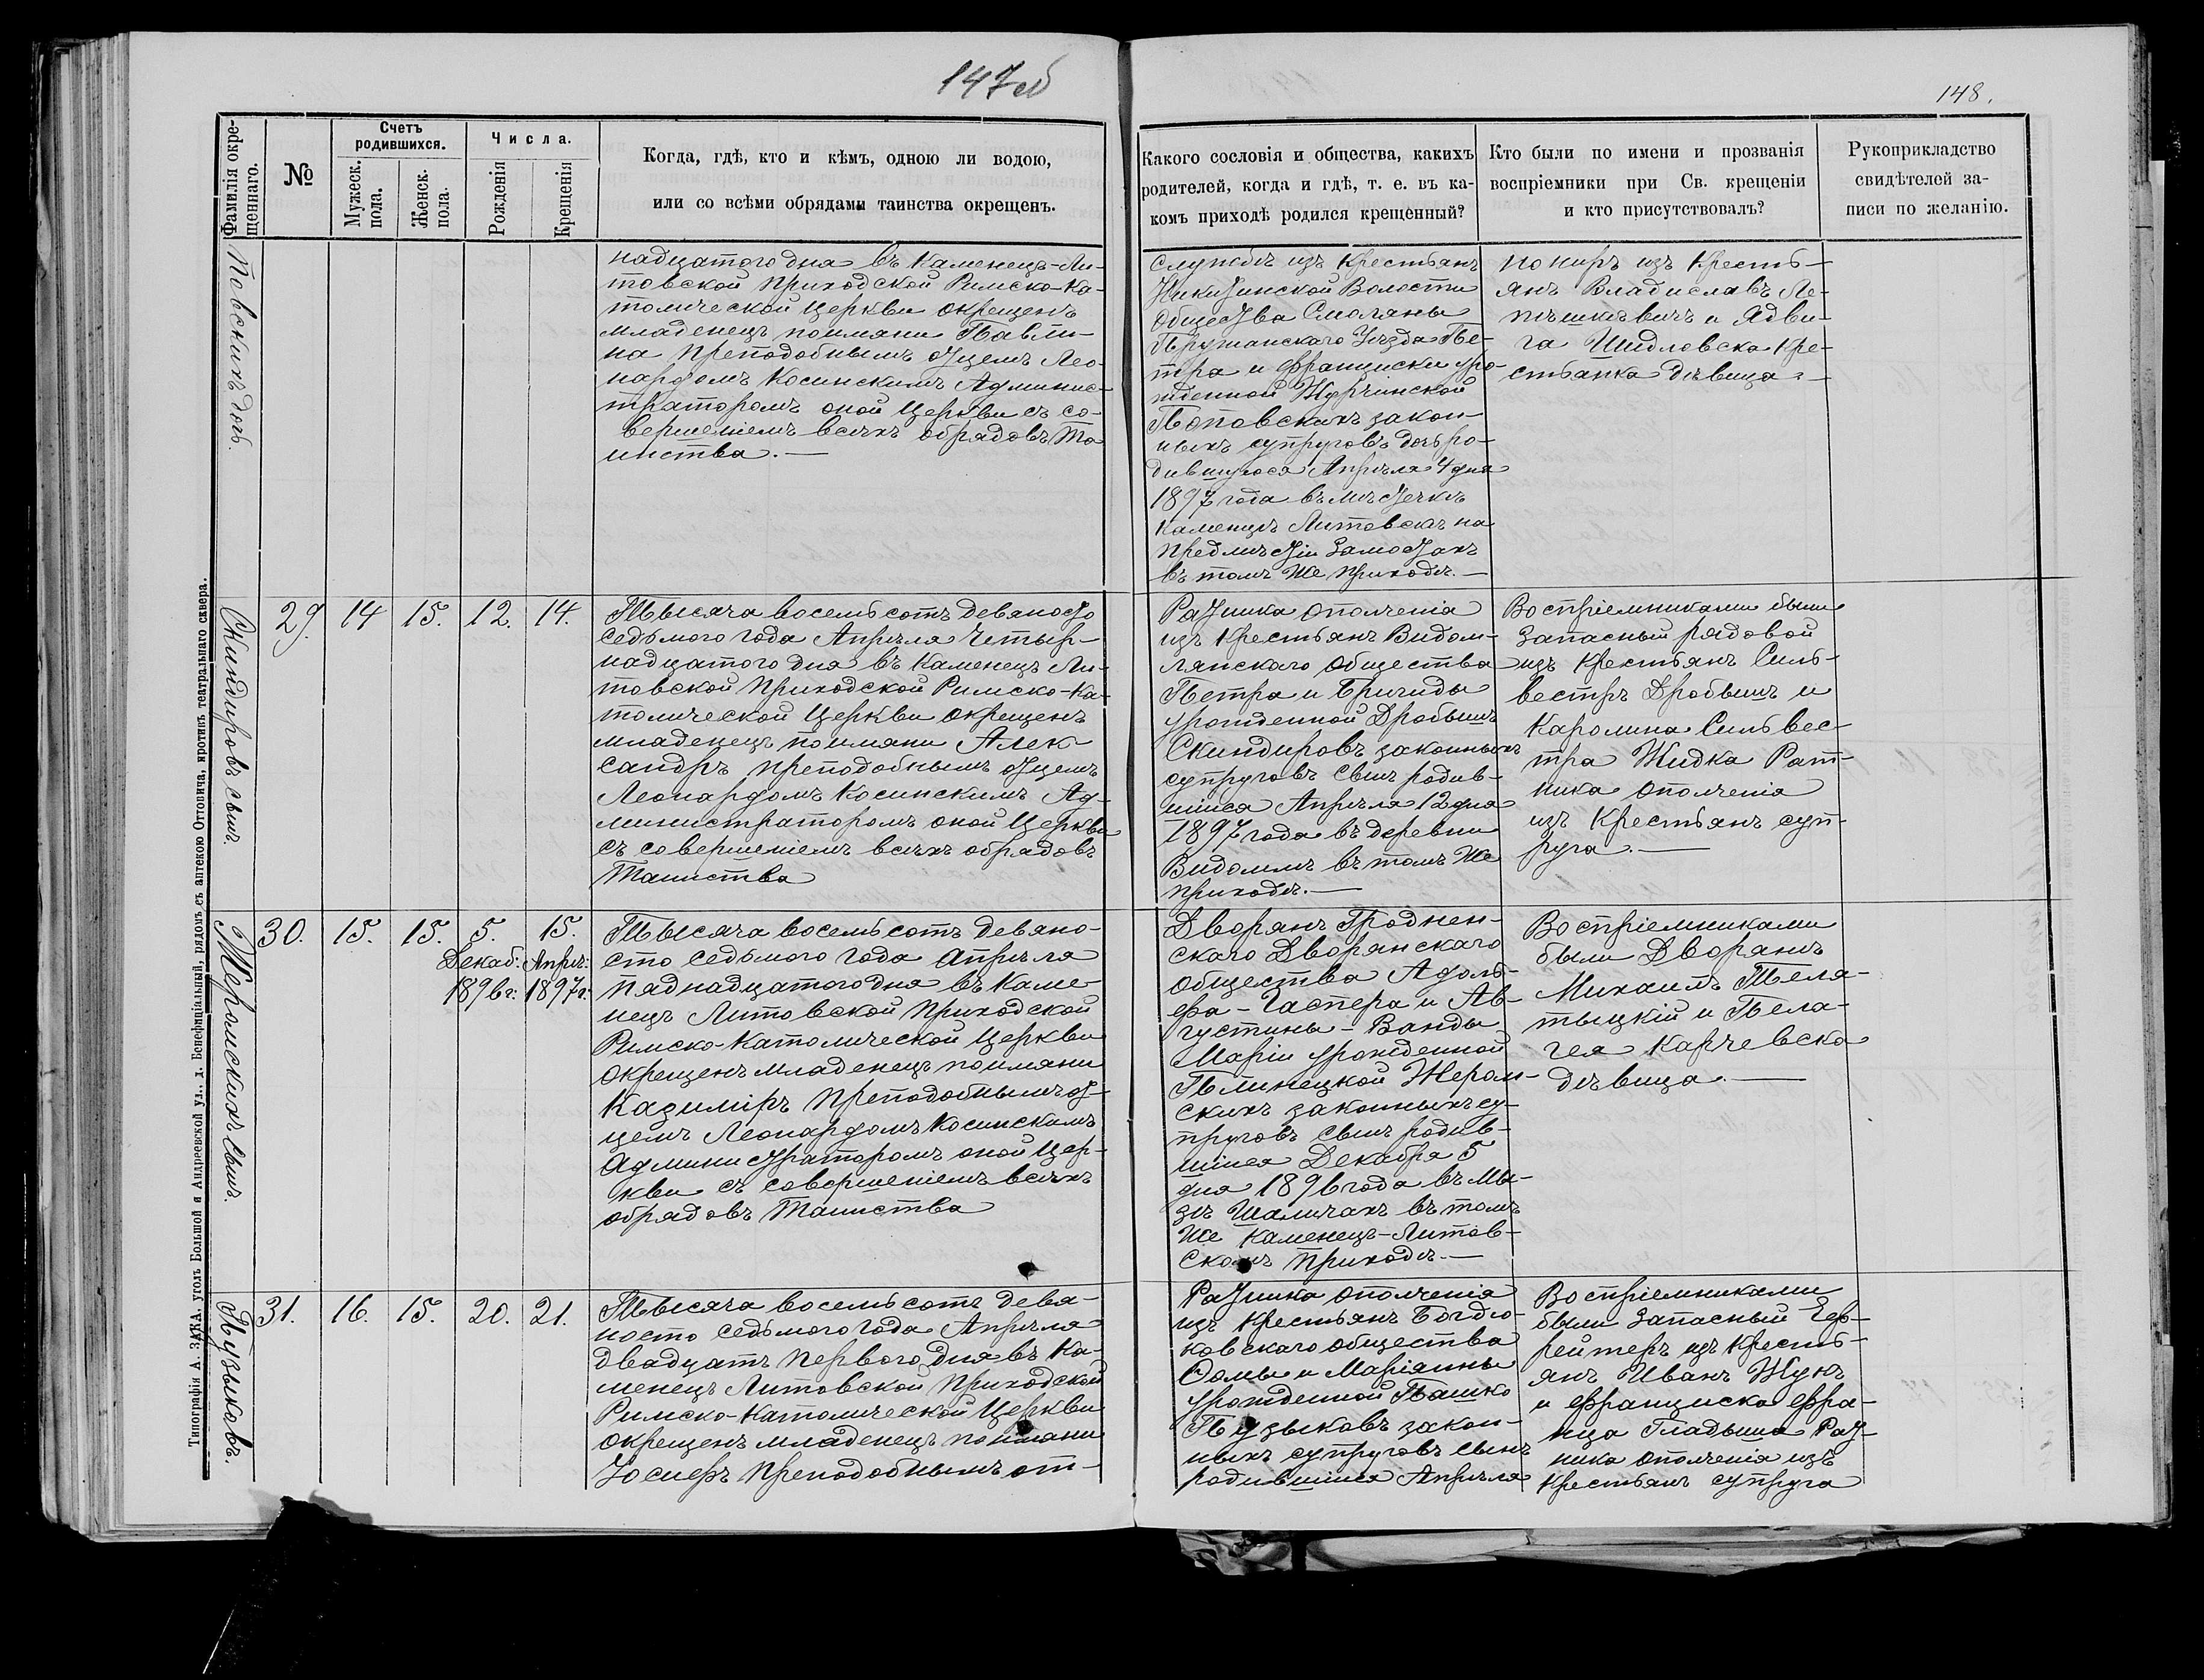 147об
148.
Фамилія окре-
щеннаго.
№
Счетъ
родившихся.
Мужеск.
пола.
Женск.
пола.
Числа.
Рожденія
Крещенія
Когда, гдѣ, кто и кѣмъ, одною ли водою,
или со всѣми обрядами таинства окрещенъ.
Какого сословія и общества, какихъ
родителей, когда и гдѣ, т. е. въ ка-
комъ приходѣ родился крещенный?
Кто были по имени и прозванія
воспріемники при Св. крещеніи
и кто присутствовалъ?
Рукоприкладство
свидѣтелей за-
писи по желанію.
повскихъ дочь.
надцатого дня въ Каменецъ-Ли-
товской Приходской Римско-Ка-
толической Церкви окрещенъ
младенецъ поимяни Павли-
на Преподобнымъ отцемъ Лео-
нардомъ Косинскимъ Админис-
траторомъ оной Церкви съ со-
вершеніемъ всѣхъ обрядовъ Та
инства.—
службѣ изъ Крестьянъ
Волости
Общества Смоляны
Пружанскаго Уѣзда Пе-
тра и Франциски уро-
жденной
Поповскихъ закон-
ныхъ супруговъ дочь ро-
дившуюся Апрѣля 4 дня
1897 года въ мѣстечкѣ
Каменцѣ Литовскѣ на
предмѣстіи Замостахъ
въ томъ же приходѣ.—
изъ Кресть-
янъ Владиславъ Ле-
и Ядви-
га Шидловска Кре-
стьянка дѣвица.—
Скиндировъ сынъ.
29.
14
15.
12.
14.
Тысяча восемьсотъ девяносто
седьмого года Апрѣля четыр-
надцатого дня въ Каменецъ Ли-
товской Приходской Римско-Ка-
толической Церкви окрещенъ
младенецъ поимяни Алек-
сандръ преподобнымъ отцемъ
Леонардомъ Косинскимъ Ад-
министраторомъ оной Церкви
съ совершеніемъ всѣхъ обрядовъ
Таинства
Ратника ополченія
изъ Крестьянъ Видом-
лянскаго общества
Петра и Бригиды
урожденной Дробышъ
Скиндировъ законныхъ
супруговъ сынъ родив-
шійся Апрѣля 12 дня
1897 года въ деревни
Видомлѣ въ томъ же
приходѣ.—
Воспріемниками были
Запасный рядовой
изъ Крестьянъ Силь-
вестръ Дробышъ и
Каролина Сильвес-
тра Жидка Рат-
ника ополченія
изъ Крестьянъ суп-
руга.—
Жеромскихъ сынъ.
30.
15.
15.
5.
Декаб:
1896г:
15.
Апрѣ:
1897г:
Тысяча восемьсотъ девяно-
сто седьмого года Апрѣля
пяднадцатого дня въ Каме-
нецъ Литовской Приходской
Римско-Католической Церкви
окрещенъ младенецъ поимяни
Казиміръ преподобнымъ от-
цемъ Леонардомъ Косинскимъ
Администраторомъ оной Цер-
кви съ совершеніемъ всѣхъ
обрядовъ Таинства
Дворянъ Гроднен-
скаго Дворянскаго
общества Адоль-
фа-Гаспера и Ав-
густины-Ванды
Маріи урожденной
Пелинецкой Жером-
скихъ законныхъ су-
пруговъ сынъ родив-
шійся Декабря 5
дня 1896 года въ Мы-
зѣ въ томъ
же Каменецъ-Литов-
скомъ приходѣ.—
Воспріемниками
были Дворянъ
Михаилъ Теля-
тыцкій и Пела-
гея Карчевска
дѣвица.—
Пузыковъ.
31.
16.
15.
20.
21.
Тысяча восемьсотъ девя-
носто седьмого года Апрѣля
двадцать перваго дня въ Ка-
менецъ Литовской Приходской
Римско-Католической Церкви
окрещенъ младенецъ поимяни
Іосифъ преподобнымъ от-
Ратника ополченія
изъ Крестьянъ Богдю-
ковскаго общества
Ѳомы и Маріянны
урожденной Пашко
Пузыковъ закон-
ныхъ супруговъ сынъ
родившійся Апрѣля
Воспріемниками
были Запасный Еф-
рейтеръ изъ Кресть-
янъ Иванъ Жукъ
и Франциска Фра-
нца Гладыша Рат-
ника ополченія изъ
Крестьянъ супруга
Типографія А. ЗАКА, уголъ Большой и Андреевской ул., д. Бенефиціальный, рядомъ съ аптекою Оттовича, противъ театральнаго сквера.